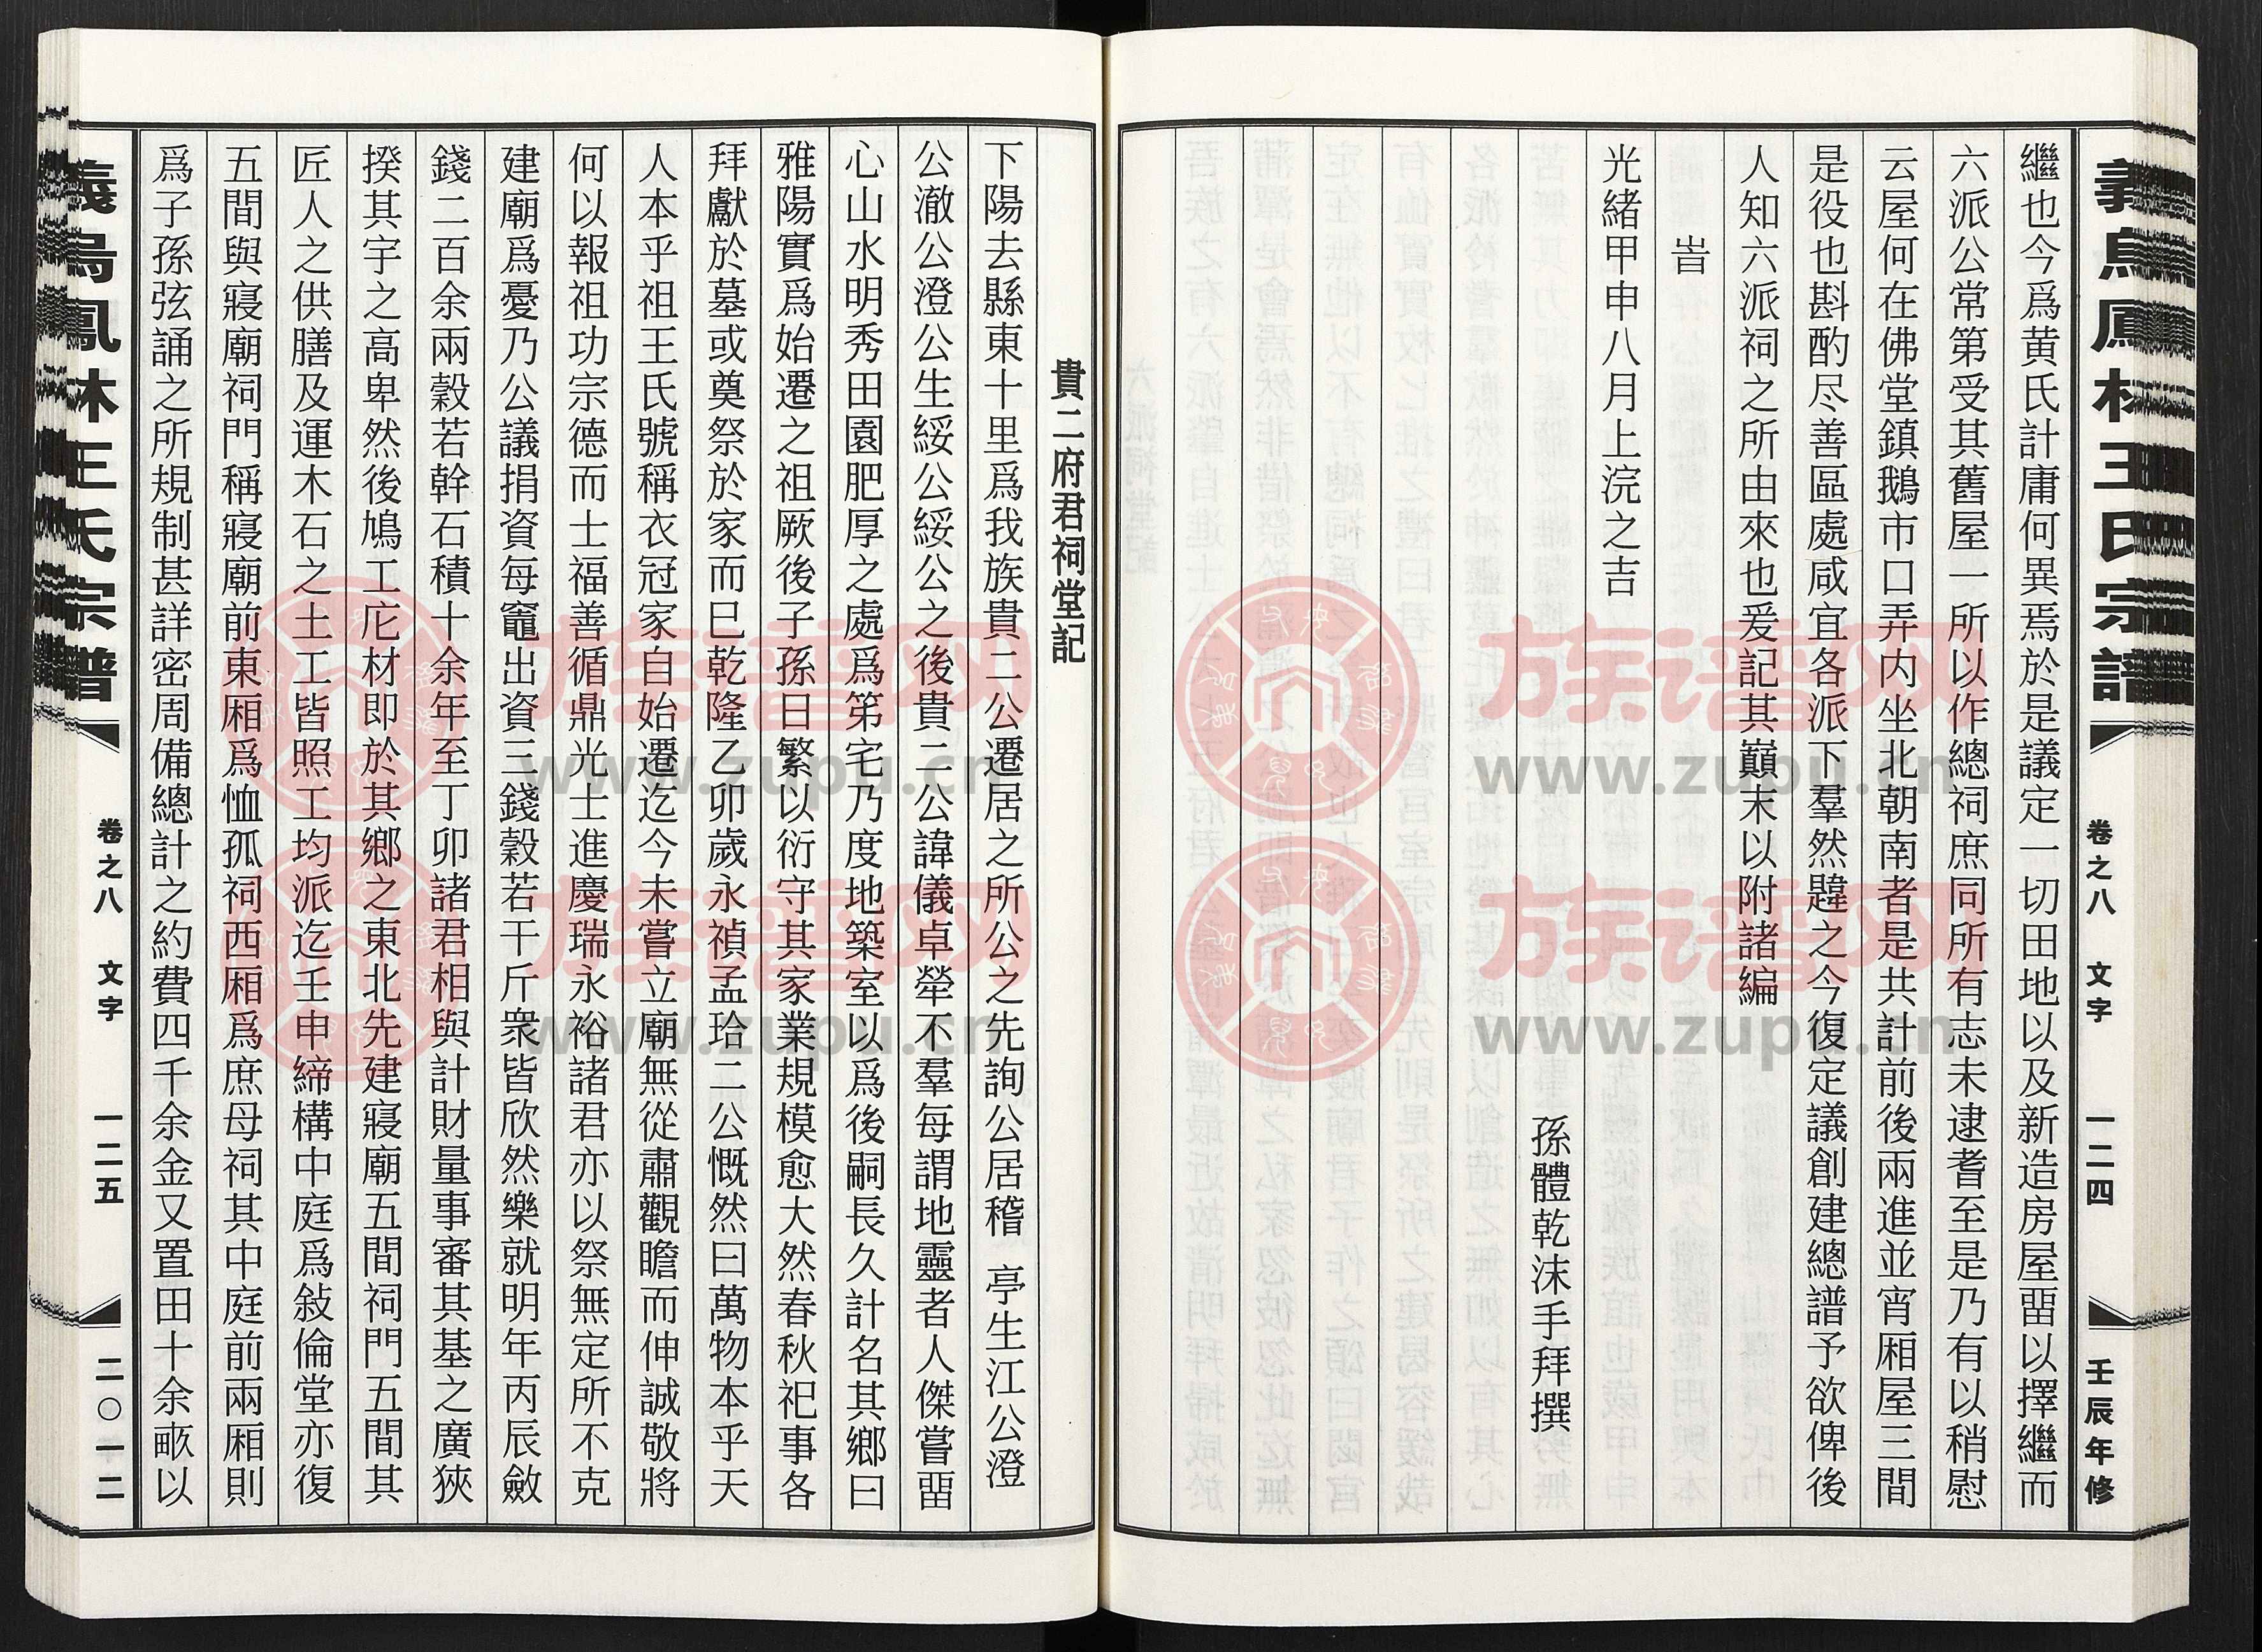 義烏鳳林王氏宗譜
卷之八 文字 一二四
壬辰年修
繼也今爲黃氏計庸何異焉於是議定一切田地以及新造房屋畱以擇繼而
六派公常第受其舊屋一所以作總祠庶同所有志未逮耆至是乃有以稍慰
云屋何在佛堂鎮鵝市口弄内坐北朝南者是共計前後兩進並宵厢屋三間
是役也斟酌尽善區處咸宜各派下羣然韙之今復定議創建總譜予欲俾後
人知六派祠之所由來也爰記其巔末以附諸編
旹
光緒甲申八月上浣之吉
孫體乾沫手拜撰
貴二府君祠堂記
下陽去縣東十里爲我族貴二公遷居之所公之先詢公居稽 亭生江公澄
公澈公澄公生綏公綏公之後貴二公諱儀卓犖不羣每謂地靈者人傑嘗畱
心山水明秀田園肥厚之處爲第宅乃度地築室以爲後嗣長久計名其鄉曰
雅陽實爲始遷之祖厥後子孫日繁以衍守其家業規模愈大然春秋祀事各
拜獻於墓或奠祭於家而巳乾隆乙卯歲永禎孟珆二公慨然曰萬物本乎天
人本乎祖王氏號稱衣冠家自始遷迄今未嘗立廟無從肅觀瞻而伸誠敬將
何以報祖功宗德而士福善循鼎光士進慶瑞永裕諸君亦以祭無定所不克
建廟爲憂乃公議捐資每竈出資三錢穀若干斤衆皆欣然樂就明年丙辰斂
錢二百余兩穀若幹石積十余年至丁卯諸君相與計財量事審其基之廣狹
揆其宇之高卑然後鳩工庀材即於其鄉之東北先建寢廟五間祠門五間其
匠人之供膳及運木石之土工皆照工均派迄壬申締構中庭爲敍倫堂亦復
五間與寢廟祠門稱寢廟前東厢爲恤孤祠西厢爲庶母祠其中庭前兩厢則
爲子孫弦誦之所規制甚詳密周備總計之約費四千余金又置田十余畝以
義烏鳳林王氏宗譜
卷之八 文字 一二五
二〇一二
族谱网
www.zupu.cn
族谱网
www.zupu.cn
族谱网
www.zupu.cn
族谱网
www.zupu.cn